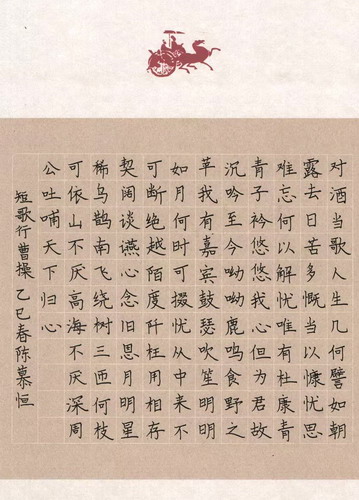 对酒当歌人生几何譬如朝
露去日苦多慨当以慷忧思
难忘何以解忧唯有杜康青
青子衿悠悠我心但为君故
沉吟至今呦呦鹿鸣食野之
苹我有嘉宾鼓瑟吹笙明明
如月何时可掇忧从中来不
可断绝越陌度阡枉用相存
契阔谈䜩心念旧恩月明星
稀乌鹊南飞绕树三匝何枝
可依山不厌高海不厌深周
公吐哺天下归心
短歌行曹操 乙巳春陈慕恒